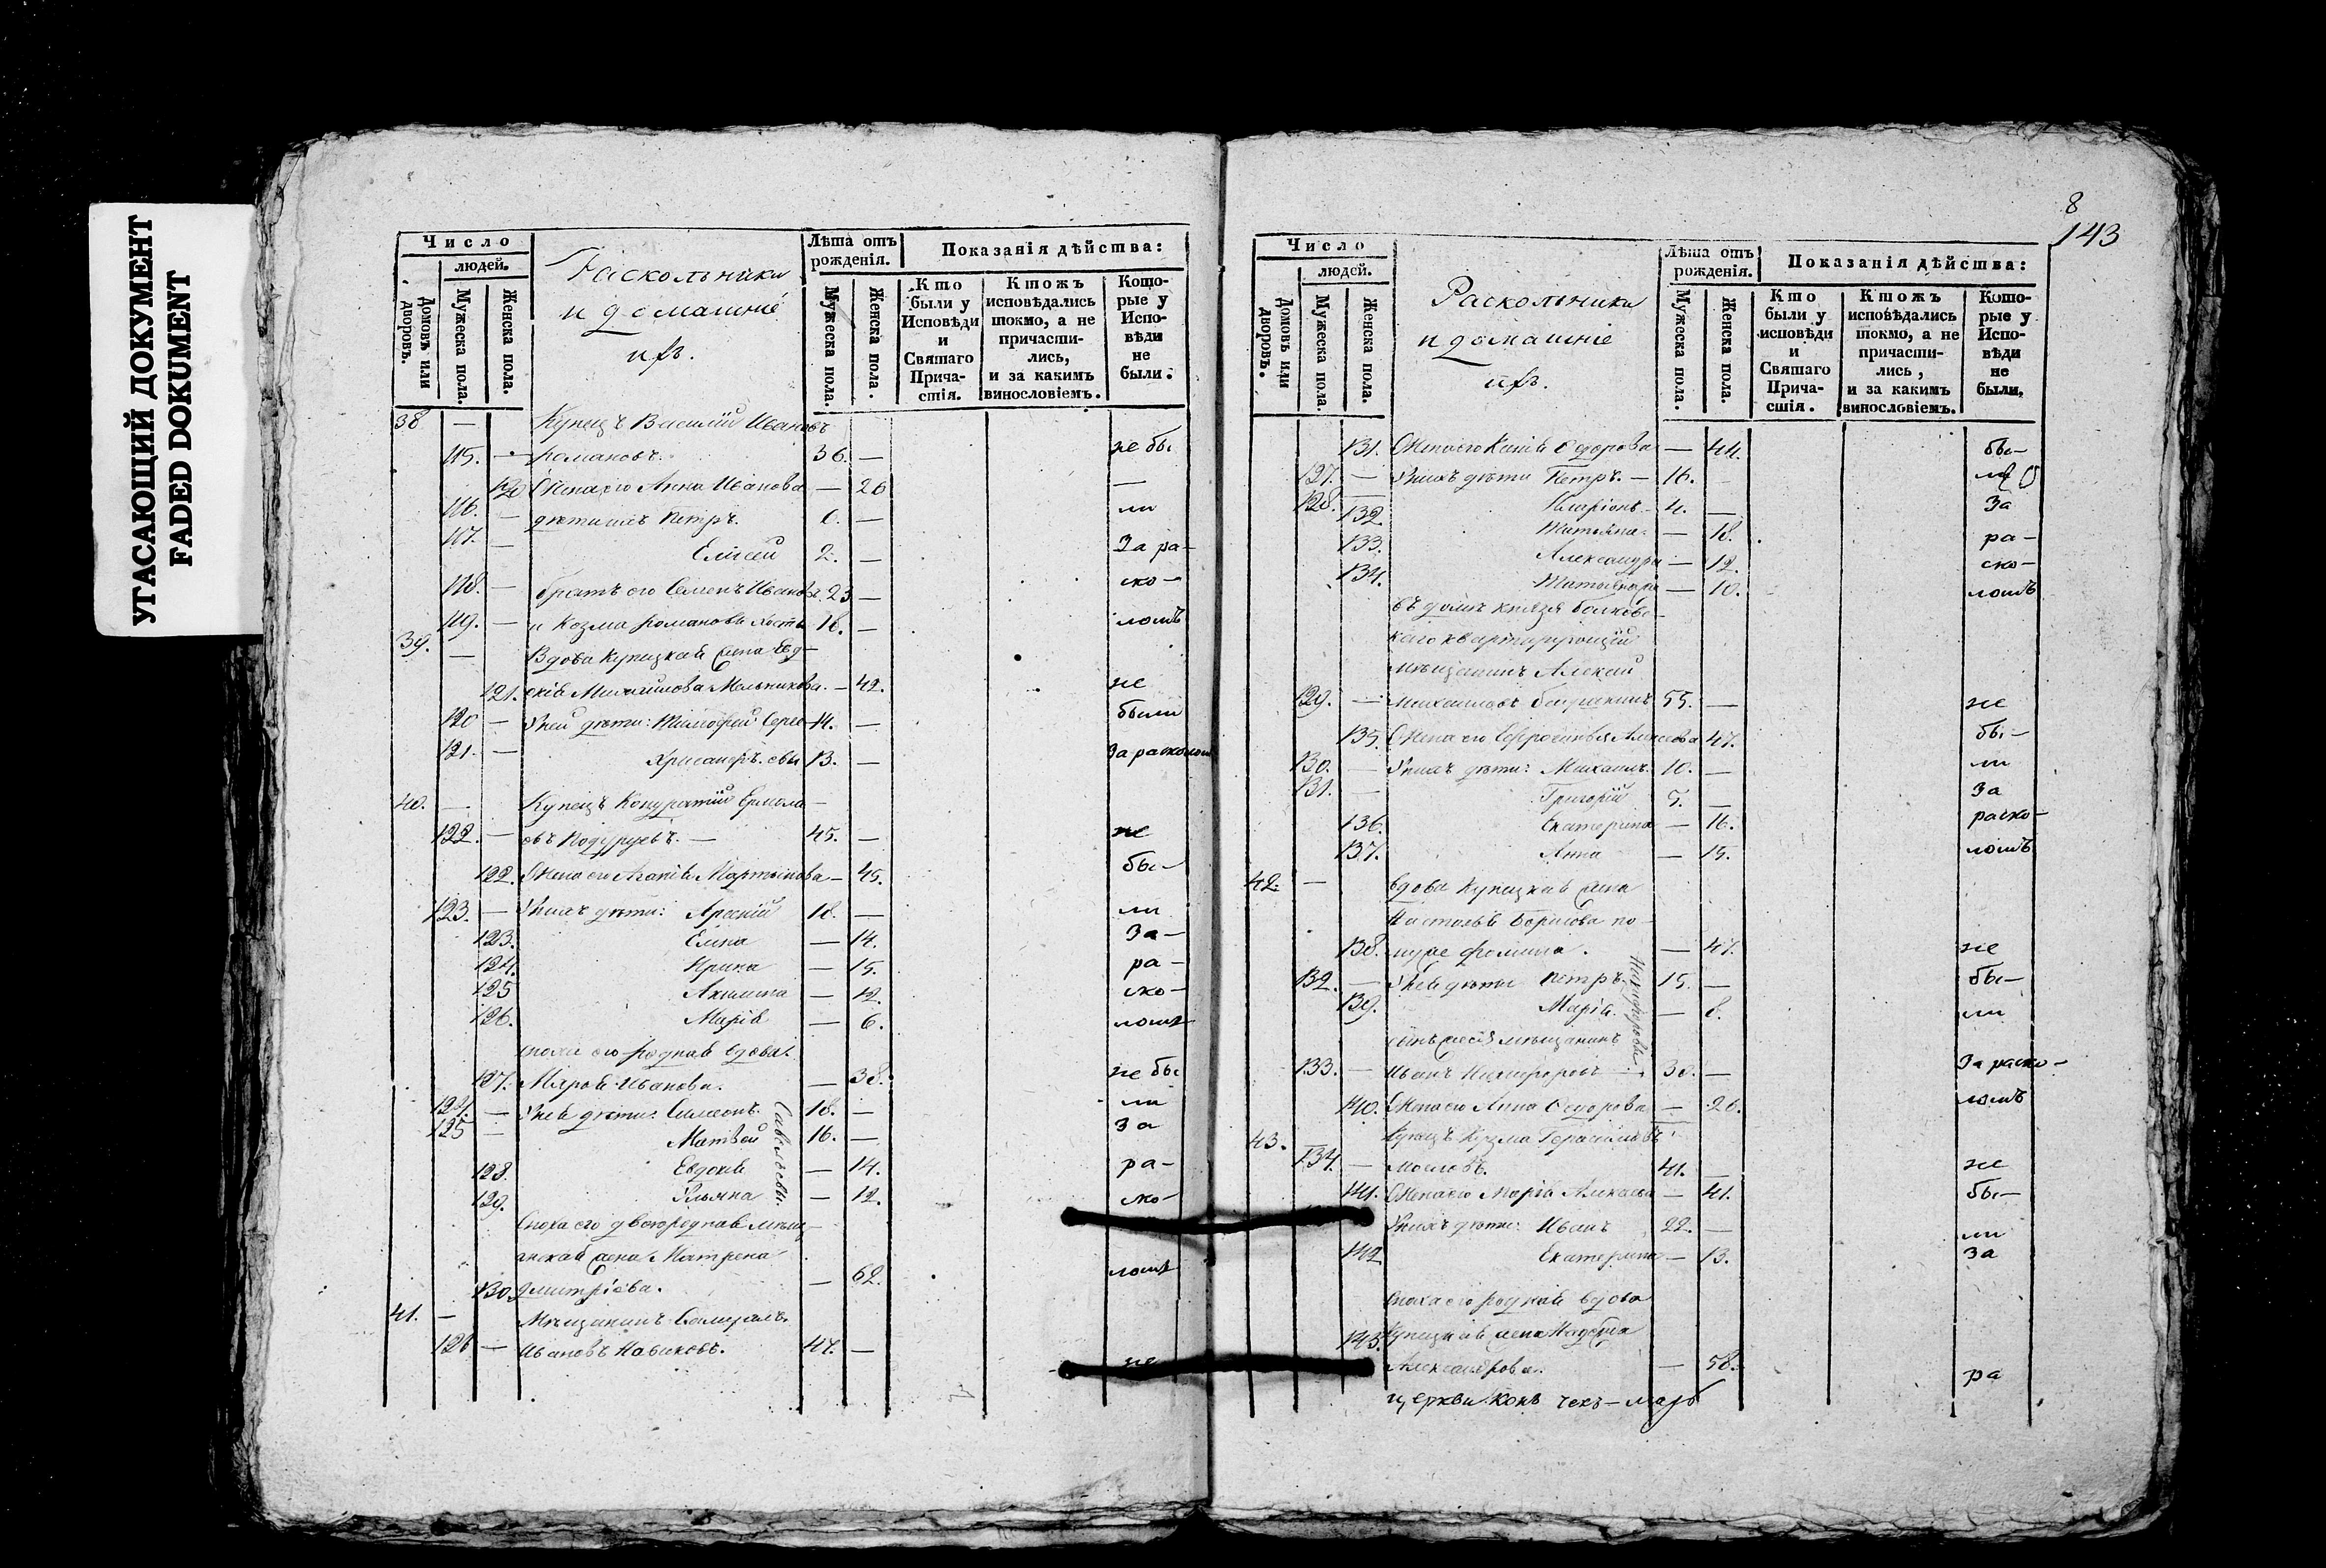 УГАСАЮЩИЙ ДОКУМЕНТ
FADED DOKUMENT
Число
людей.
Домовъ или дворовъ.
Мужеска пола.
Женска пола.
Раскольники
и домашніе
ихъ.
Лѣта отъ рожденія.
Мужеска пола.
Женска пола.
Показанія дѣйства:
Кто были у Исповѣди и Святаго Причастія.
Ктожъ исповѣдались токмо, а не причастились, и за какимъ винословіемъ.
Которые у Исповѣди не были.
38 — Купецъ Василій Ивановъ
115. — Романовъ. 36. — не бы
120 Жена его Анна Иванова — 26 —
116. — дѣти ихъ Петръ. 6. — ли
117. — Елисей 2. — За ра-
118. — братъ его Семенъ Ивановъ. 23 — ско-
119. — и Козма Романовы 18. — ломъ
39. — Вдова Купецкая жена Евд-
121. окія Мельникова. — 42. не
120 — У ней дѣти: Тимофей 14. — были
121. — Хрисанфъ. 13. — За расколом
40. — Купецъ Кондратій Ермола-
122. — евъ 45. — не
122. Жена его Агапія Мартынова — 45. бы-
123. — У нихъ дѣти: Арсеній 18. — ли
123. Елена — 14. За-
124. Ирина — 15. ра-
125 Акилина — 12. ско-
126. Марія — 6. ломъ
сноха его родная вдова
127. Иванова. — 38. не бы
124. — У ней дѣти: Симеонъ. 18. — ли
125 — Матвей 16. — За
128. Евдокія — 14. ра-
129. Ульяна — 12. ско-
Савельевы
Сноха его двоюродная мѣщ-
анская жена Матрена
130. Дмитріева. — 62. ломъ
41. — Мѣщанинъ
126 — Ивановъ Новиковъ. 47. — не
8
143
Число
людей.
Домовъ или дворовъ.
Мужеска пола.
Женска пола.
Раскольники
и домашніе
ихъ.
Лѣта отъ рожденія.
Мужеска пола.
Женска пола.
Показанія дѣйства:
Кто были у исповѣди и Святаго Причастія.
Ктожъ исповѣдались токмо, а не причастились, и за какимъ винословіемъ.
Которые у Исповѣди не были,
131. Жена его Ѳедорова — 44. бы-
127. — У нихъ дѣти Петръ. — 16. ли
128. Иларіонъ. 4. — За
132. Татьяна. — 18. ра-
133. Александра — 12. ско-
134. — 10. ломъ
въ домѣ князя
каго квартирующій
мѣщанинъ Алексей
129. — Михайловъ 55. — не
135. Жена его Ефросинья Алексеева 47. бы-
130. — У нихъ дѣти: Михаилъ. 10. — ли
131. — Григорій 5. — За
136. Екатерина — 16. раско-
137. Анна — 15. ломъ
42. — вдова Купецкая жена
Настасья Борисова по
138. мужѣ Фомина. — 47. не
132. — У ней дѣти Петръ. 15. — бы-
139. Марія. — 8. ли
Никифоровы
сынъ ея мѣщанинъ
133. — Иванъ Никифоровъ — 30. — За раско-
140. Жена его Анна Ѳедорова — 26. ломъ
43. Купецъ Кузма Герасимовъ
134. — 41. — не
141. Жена его Марія Алексеева — 41. бы-
У нихъ дѣти: Иванъ 22. — ли
142 Екатерина — 13. За
Сноха его родная вдова
143. Купецкая жена Надежда
Александрова. — 58. ра
церкви